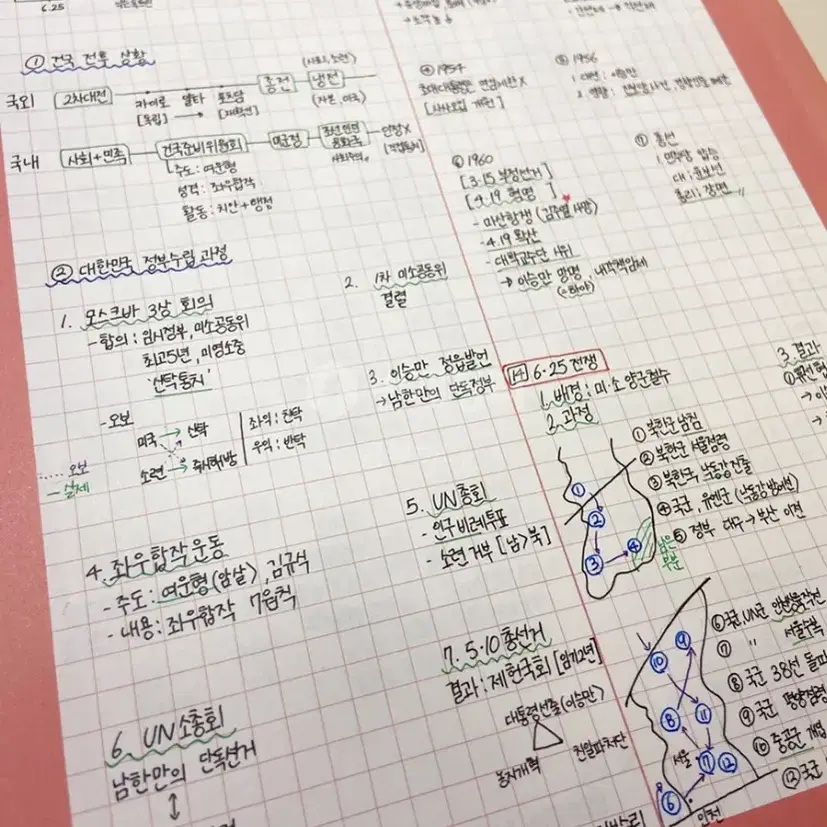 6.25
① 건국 전후 상황
(사회, 소련)
국외 2차대전 카이로 얄타 포츠담 종전 냉전
[독립] → [재확인]
(자본, 미국)
국내 사회+민족 건국준비위원회 미군정 조선인민공화국 인정X
주도 : 여운형
사회주의
[직접통치]
성격 : 좌우합작
활동 : 치안+행정
② 대한민국 정부수립 과정
1. 모스크바 3상 회의
- 합의 : 임시정부, 미소공동위
최고 5년, 미영소중
'신탁통치'
- 오보
미국 → 신탁
소련 →
좌익 : 찬탁
우익 : 반탁
..... 오보
— 실제
2. 1차 미소공동위
결렬
3. 이승만 정읍발언
→ 남한만의 단독정부
4. 좌우합작운동
- 주도 : 여운형(암살), 김규식
- 내용 : 좌우합작 7원칙
5. UN총회
- 인구비례투표
- 소련 거부 [남>북]
6. UN소총회
남한만의 단독선거
↕
7. 5·10 총선거
결과 : 제헌국회 [임기2년]
대통령선출(이승만)
농지개혁
친일파처단
④ 1954
초대대통령은 연임제한X
[사사오입 개헌]
⑤ 1956
1. 대선 : 이승만
⑥ 1960
[3·15 부정선거]
[4·19 혁명]
- 마산항쟁 (김주열 사망)
- 4·19 확산
- 대학교수단 시위
→ 이승만 망명, 내각책임제
(=하야)
⑦ 총선
1. 민주당 압승
대 ; 윤보선
총리 ; 장면
14 6·25 전쟁
1. 배경 : 미·소 양군철수
2. 과정
① 북한군 남침
② 북한군 서울점령
③ 북한군 낙동강 진출
④ 국군, 유엔군 (낙동강 방어선)
⑤ 정부 대구 → 부산 이전
① ② ③ ④
남은
부분
3. 결과
⑥ 국군, UN군 인천상륙작전
⑦ " 서울수복
⑧ 국군 38선 돌파
⑨ 국군 평양점령
⑩ 중공군 개입
⑫ 국군
⑨ ⑩ ⑧ ⑪ ⑦ ⑫ ⑥
서울
인천